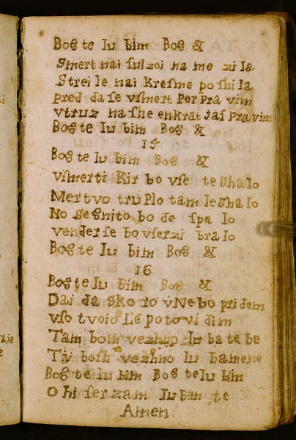 Bog te lu bim Bog &
Smert nai sulzoi na me zi la
Strei le nai kresme po shi la
pred da se vsmert Per Pra vim
vtruz na she enkrat Jas Pra vim
Bog te lu bim Bog &
15
Bog te lu bim Bog &
vsmerti kir bo vse te sha lo
Mertvo truPlo tam le sha lo
No gegnito bo de spa lo
vender se bo vserzi bra lo
Bog te lu bim Bog &
16
Bog te lu bim Bog &
Dai da sko ro v Ne bo pri dem
vso tvoio Le poto vi dim
Tam bom vezhno lu ba te be
Ti bosh vezhno lu ba mene
Bog te lu bim Bog te lu bim
O hi ser zam lu bim te
Amen